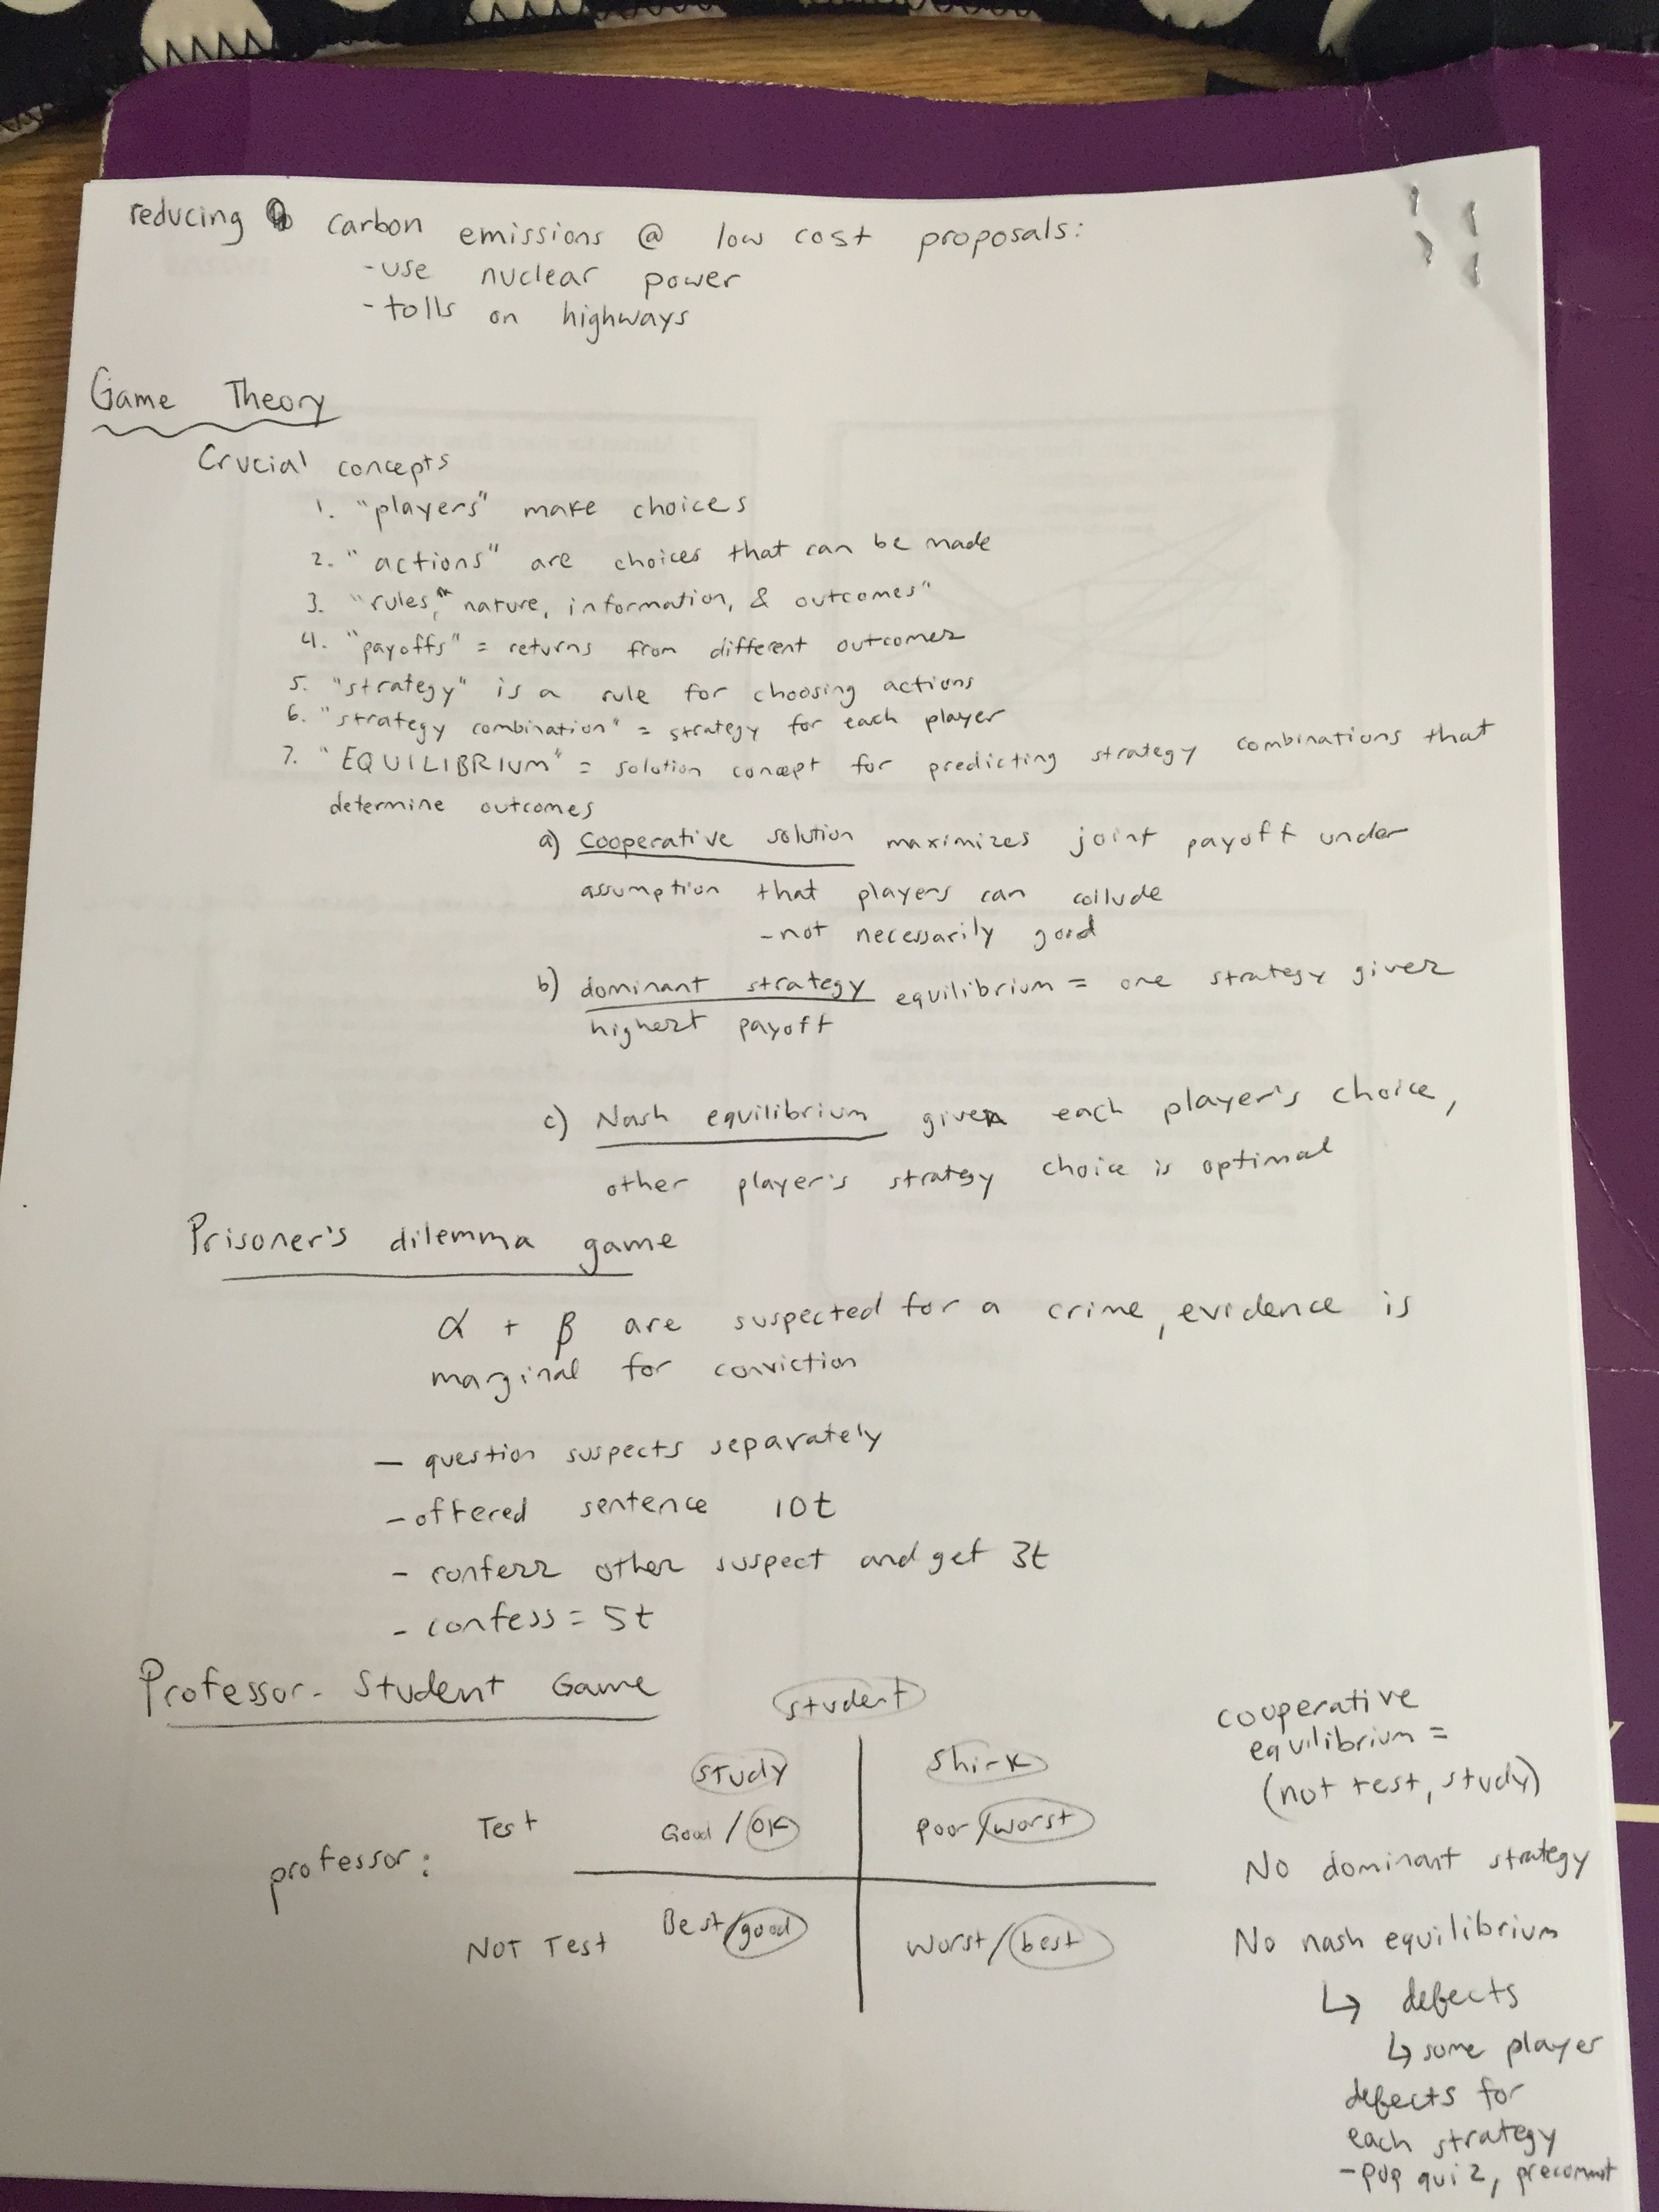 reducing carbon emissions @ low cost proposals:
- use nuclear power
- tolls on highways
Game Theory
Crucial concepts
1. "players" make choices
2. "actions" are choices that can be made
3. "rules," nature, information, & outcomes"
4. "payoffs" = returns from different outcomes
5. "strategy" is a rule for choosing actions
6. "strategy combination" = strategy for each player
7. "EQUILIBRIUM" = solution concept for predicting strategy combinations that
determine outcomes
a) Cooperative solution maximizes joint payoff under
assumption that players can collude
- not necessarily good
b) dominant strategy equilibrium = one strategy gives
highest payoff
c) Nash equilibrium given each player's choice,
other player's strategy choice is optimal
Prisoner's dilemma game
α + β are suspected for a crime, evidence is
marginal for conviction
- question suspects separately
- offered sentence 10t
- confess other suspect and get 3t
- confess = 5t
Professor-Student Game
student
study shirk
professor:
Test Good / OK poor / worst
NOT Test Best / good worst / best
cooperative
equilibrium =
(not test, study)
No dominant strategy
No nash equilibrium
↳ defects
↳ some player
defects for
each strategy
- pop quiz, precommit